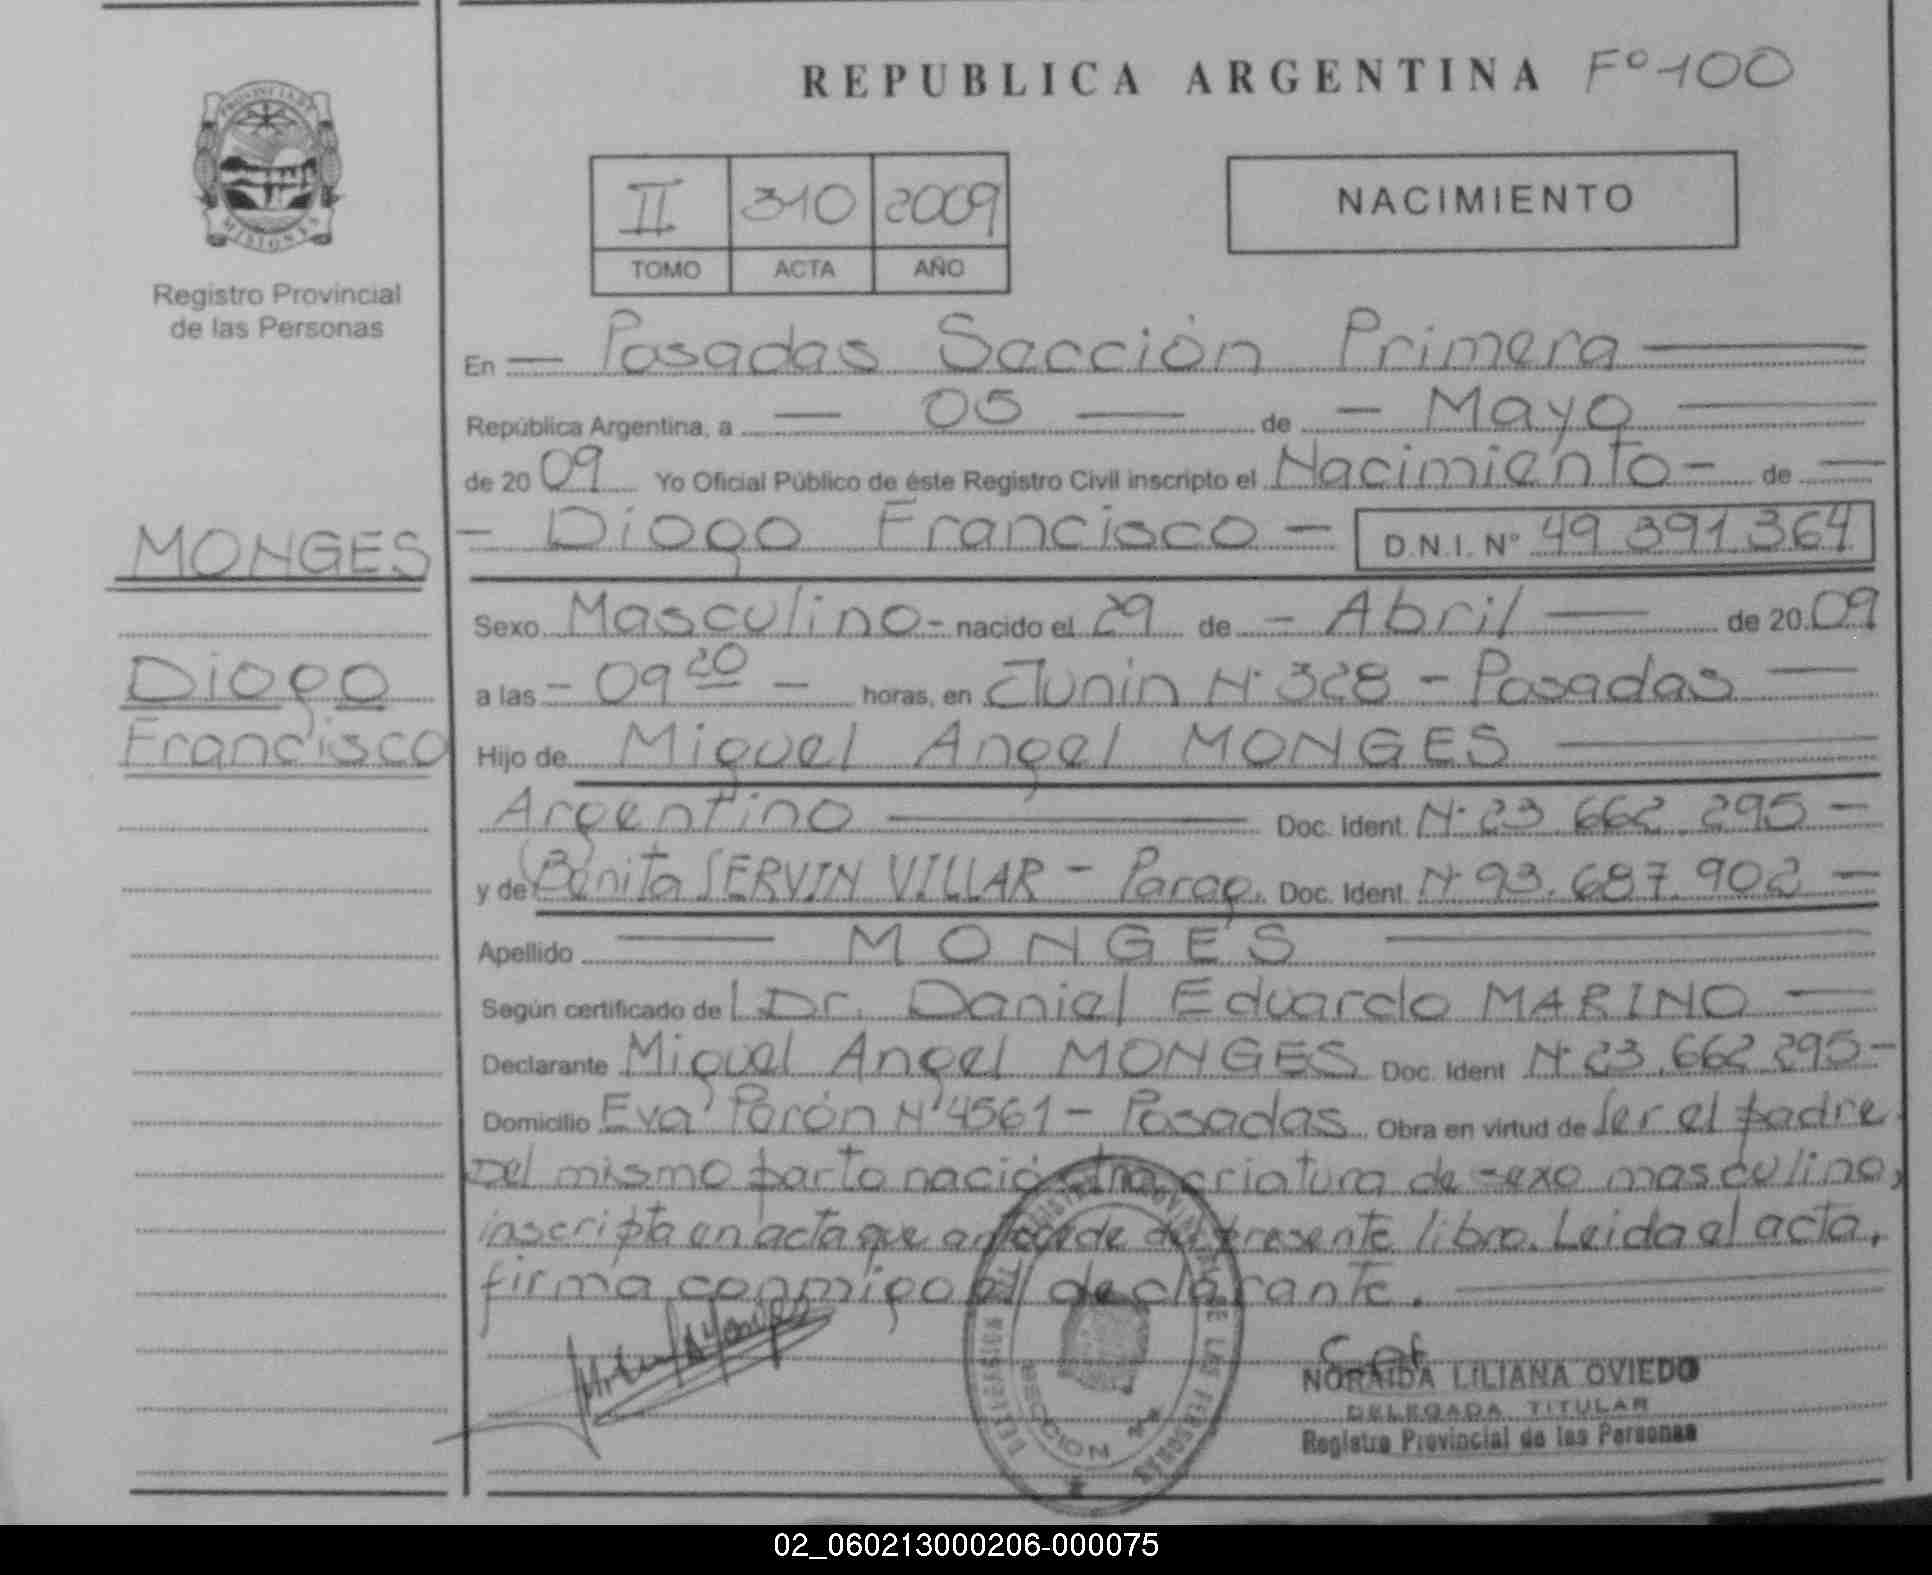 REPUBLICA ARGENTINA Fº 100
PROVINCIA DE
MISIONES
Registro Provincial
de las Personas
II 310 2009
TOMO ACTA AÑO
NACIMIENTO
En Posadas Sección Primera
República Argentina, a 05 de Mayo
de 2009 Yo Oficial Público de éste Registro Civil inscripto el Nacimiento - de
MONGES
- Diogo Francisco - D.N.I. Nº 49 391.364
Sexo Masculino - nacido el 29 de - Abril de 2009
Diogo
Francisco
a las - 09 20 - horas, en Junin Nº 328 - Posadas
Hijo de Miguel Angel MONGES
Argentino Doc. Ident. Nº 23.662.295 -
y de Benita SERVIN VILLAR - Parag. Doc. Ident. Nº 93.687.902 -
Apellido MONGES
Según certificado de Dr. Daniel Eduardo MARINO
Declarante Miguel Angel MONGES Doc. Ident Nº 23.662.295 -
Domicilio Eva Perón Nº 4561 - Posadas. Obra en virtud de ser el padre
Del mismo parto nació otra criatura de sexo masculino,
inscripta en acta que antecede del presente libro. Leida el acta,
firma conmigo el declarante.
NORAIDA LILIANA OVIEDO
DELEGADA TITULAR
Registro Provincial de las Personas
02_060213000206-000075